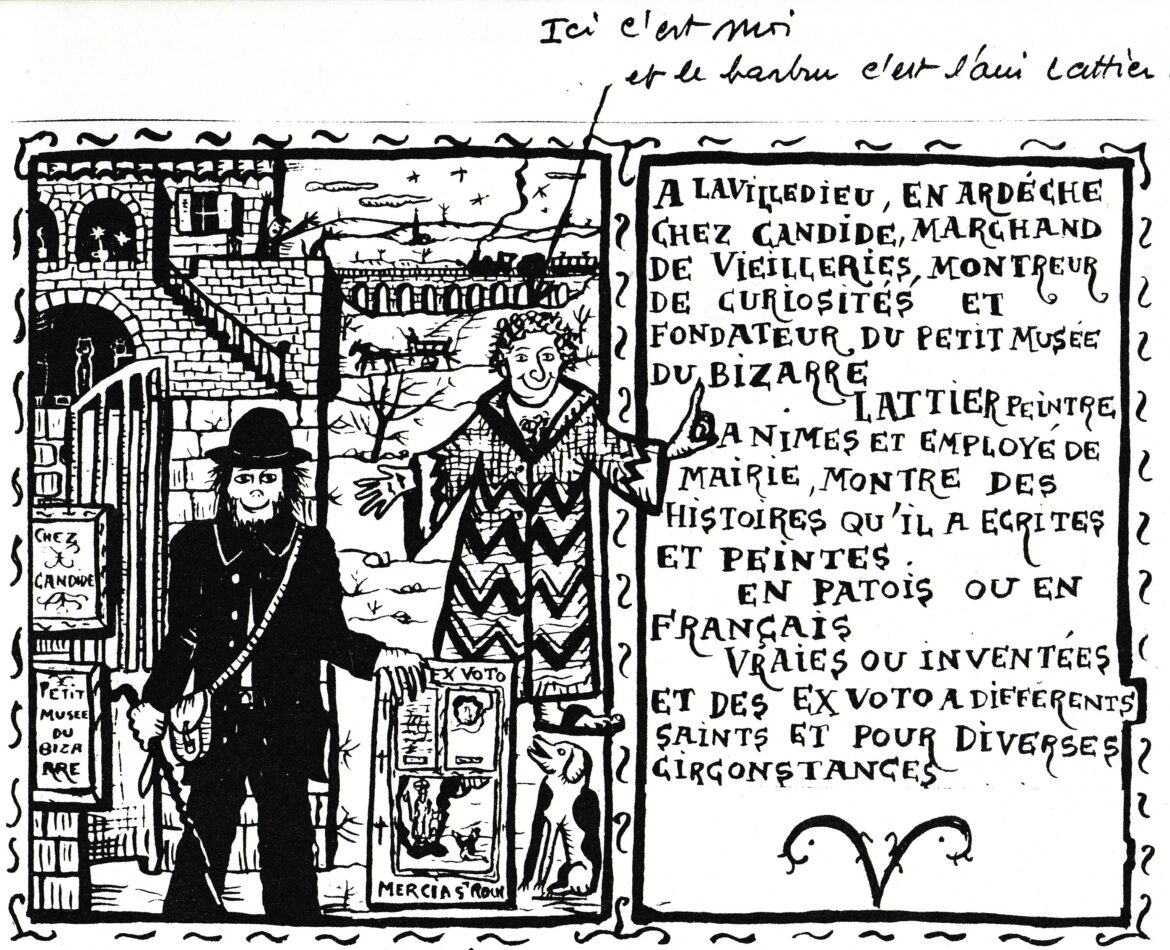 Ici c'est moi
et le barbu c'est l'ami Lattier
CHEZ
CANDIDE
PETIT
MUSEE
DU
BIZA
RRE
EX VOTO
MERCI A St ROCH
A LAVILLEDIEU, EN ARDÉCHE
CHEZ CANDIDE, MARCHAND
DE VIEILLERIES, MONTREUR
DE CURIOSITÉS ET
FONDATEUR DU PETIT MUSÉE
DU BIZARRE
LATTIER PEINTRE
D'ANIMES ET EMPLOYÉ DE
MAIRIE, MONTRE DES
HISTOIRES QU'IL A ECRITES
ET PEINTES.
EN PATOIS OU EN
FRANÇAIS
VRAIES OU INVENTÉES
ET DES EX VOTO A DIFFÉRENTS
SAINTS ET POUR DIVERSES
CIRCONSTANCES